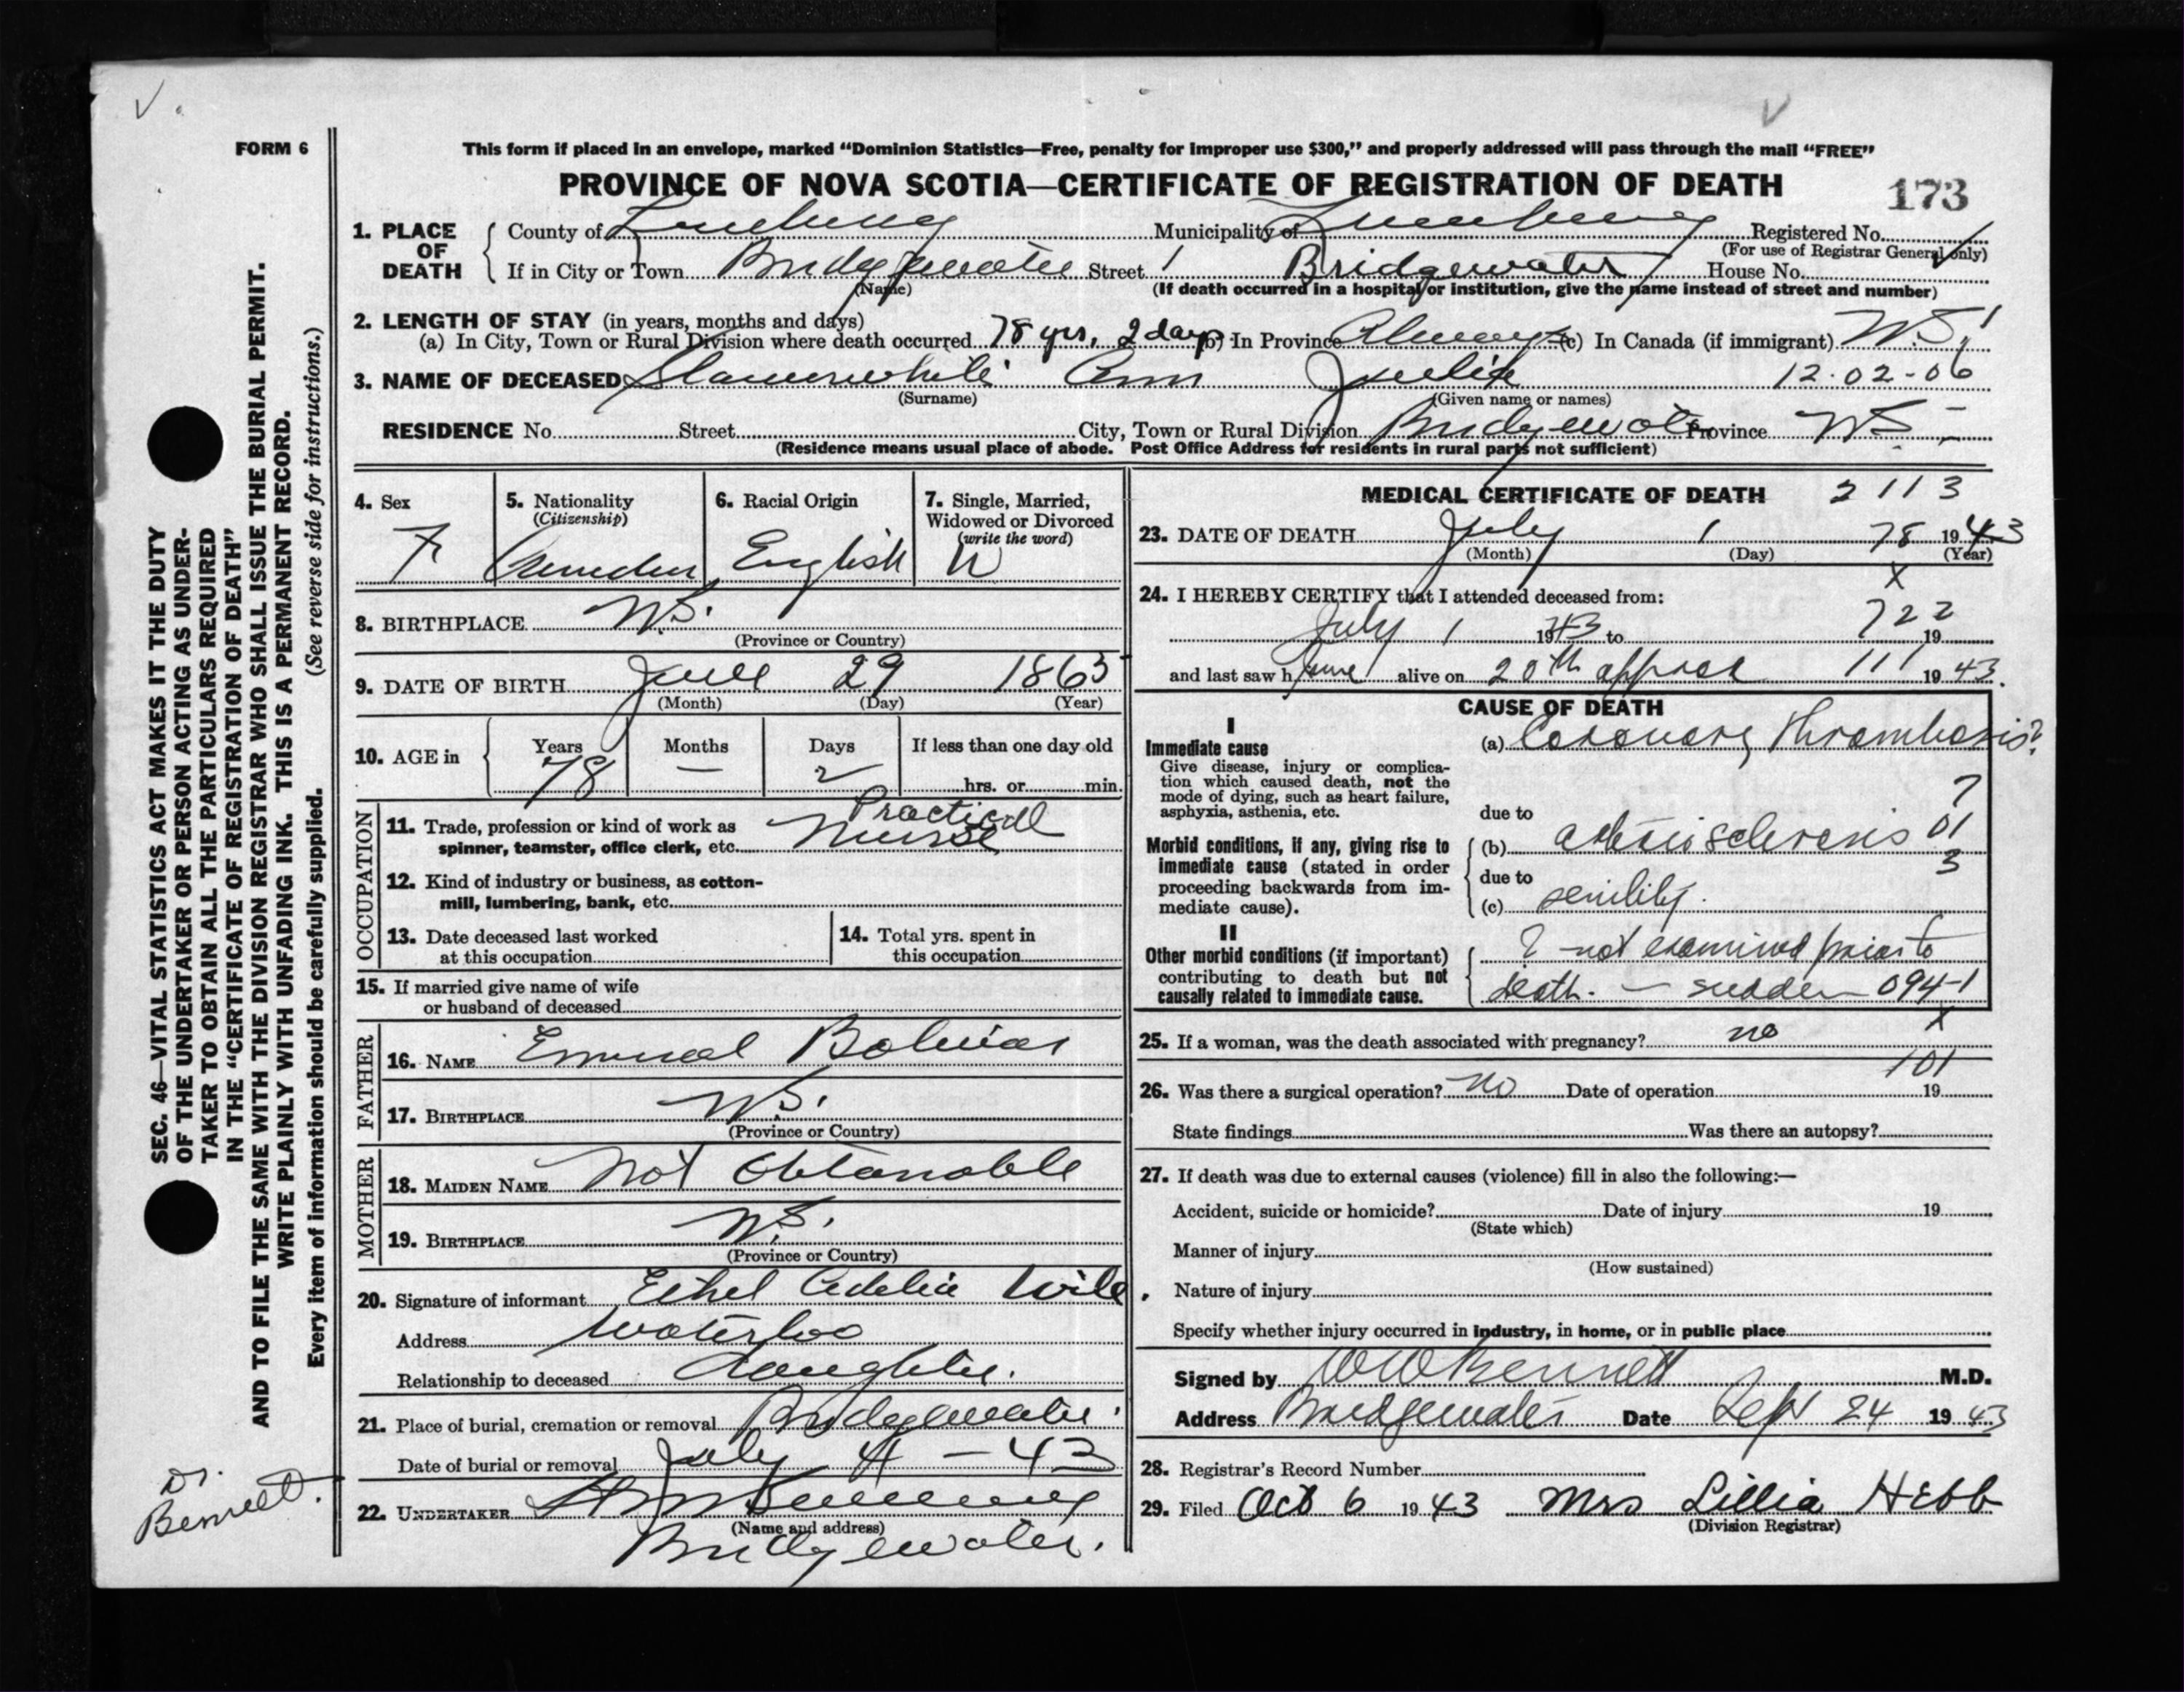 FORM 6
This form if placed in an envelope, marked “Dominion Statistics—Free, penalty for improper use $300,” and properly addressed will pass through the mail “FREE”
PROVINCE OF NOVA SCOTIA—CERTIFICATE OF REGISTRATION OF DEATH
173
1. PLACE OF DEATH
County of Lunenburg Municipality of Lunenburg Registered No.
(For use of Registrar General only)
If in City or Town Bridgewater Street 1 Bridgewater House No.
(Name) (If death occurred in a hospital or institution, give the name instead of street and number)
2. LENGTH OF STAY (in years, months and days)
(a) In City, Town or Rural Division where death occurred 78 yrs, 2 days (b) In Province Always (c) In Canada (if immigrant) N.S. 1
3. NAME OF DECEASED Slauenwhite Ann Julia 12-02-06
(Surname) (Given name or names)
RESIDENCE No. Street City, Town or Rural Division Bridgewater Province N.S.
(Residence means usual place of abode. Post Office Address for residents in rural parts not sufficient)
4. Sex
F
5. Nationality
(Citizenship)
Canadian
6. Racial Origin
English
7. Single, Married,
Widowed or Divorced
(write the word)
W
8. BIRTHPLACE N.S.
(Province or Country)
9. DATE OF BIRTH June 29 1865
(Month) (Day) (Year)
10. AGE in
Years Months Days If less than one day old
78 — 2 hrs. or min.
OCCUPATION
11. Trade, profession or kind of work as Practical
spinner, teamster, office clerk, etc. Nurse
12. Kind of industry or business, as cotton-
mill, lumbering, bank, etc.
13. Date deceased last worked
at this occupation
14. Total yrs. spent in
this occupation
15. If married give name of wife
or husband of deceased
FATHER
16. NAME Emneal Bolivar
17. BIRTHPLACE N.S.
(Province or Country)
MOTHER
18. MAIDEN NAME not obtanable
19. BIRTHPLACE N.S.
(Province or Country)
20. Signature of informant Ethel Adelia Wile
Address Waterloo
Relationship to deceased daughter.
21. Place of burial, cremation or removal Bridgewater
Date of burial or removal July 4 – 43
22. UNDERTAKER
(Name and address)
Bridgewater.
MEDICAL CERTIFICATE OF DEATH 2113
23. DATE OF DEATH July 1 78 1943
(Month) (Day) (Year)
X
24. I HEREBY CERTIFY that I attended deceased from:
July 1 1943 to 722 19
and last saw h June alive on 20th approx 111 1943.
CAUSE OF DEATH
I
Immediate cause
Give disease, injury or complica-
tion which caused death, not the
mode of dying, such as heart failure,
asphyxia, asthenia, etc.
(a) Coronary Thrombosis?
7
due to
Morbid conditions, if any, giving rise to
immediate cause (stated in order
proceeding backwards from im-
mediate cause).
(b) arteriosclerosis 01
3
due to
(c) senility.
II
Other morbid conditions (if important)
contributing to death but not
causally related to immediate cause.
? not examined prior to
death. — sudden 094-1
X
25. If a woman, was the death associated with pregnancy? no
101
26. Was there a surgical operation? no Date of operation 19
State findings Was there an autopsy?
27. If death was due to external causes (violence) fill in also the following:—
Accident, suicide or homicide? Date of injury 19
(State which)
Manner of injury
(How sustained)
Nature of injury
Specify whether injury occurred in industry, in home, or in public place
Signed by WW Bennett M.D.
Address Bridgewater Date Sept 24 1943
28. Registrar's Record Number
29. Filed Oct 6 1943 Mrs Lillia Hebb
(Division Registrar)
SEC. 46—VITAL STATISTICS ACT MAKES IT THE DUTY
OF THE UNDERTAKER OR PERSON ACTING AS UNDER-
TAKER TO OBTAIN ALL THE PARTICULARS REQUIRED
IN THE “CERTIFICATE OF REGISTRATION OF DEATH”
AND TO FILE THE SAME WITH THE DIVISION REGISTRAR WHO SHALL ISSUE THE BURIAL PERMIT.
WRITE PLAINLY WITH UNFADING INK. THIS IS A PERMANENT RECORD.
Every item of information should be carefully supplied. (See reverse side for instructions.)
Dr.
Bennett.